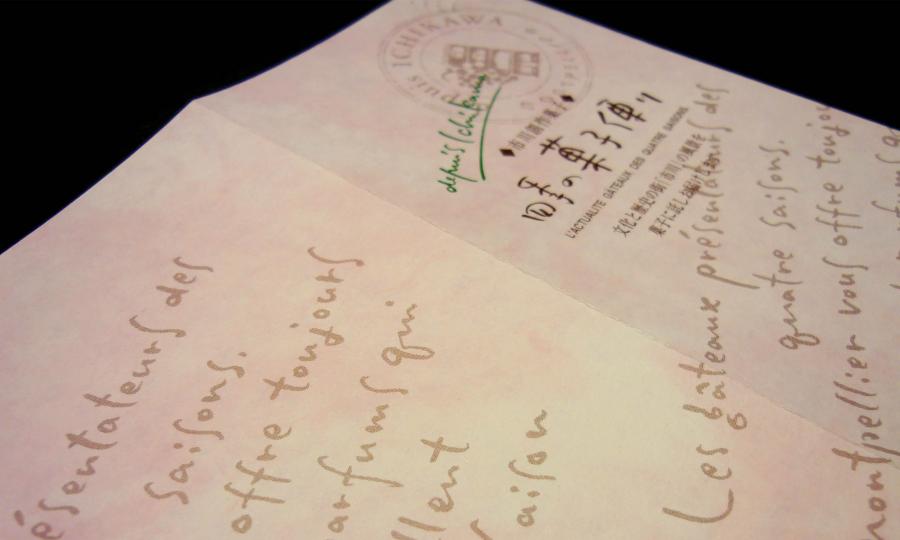 DEPUIS ICHIKAWA
depuis Ichikawa
◆市川創作菓子◆
四季の菓子便り
L'ACTUALITE GATEAUX DES QUATRE SAISONS
文化と歴史の街「市川」の風景を
菓子に託しお届け
Les gâteaux présentateurs des
quatre saisons.
montpellier vous offre toujou
arfums q
ésentateurs des
saisons.
offre toujours
arfums qui
llent
aison